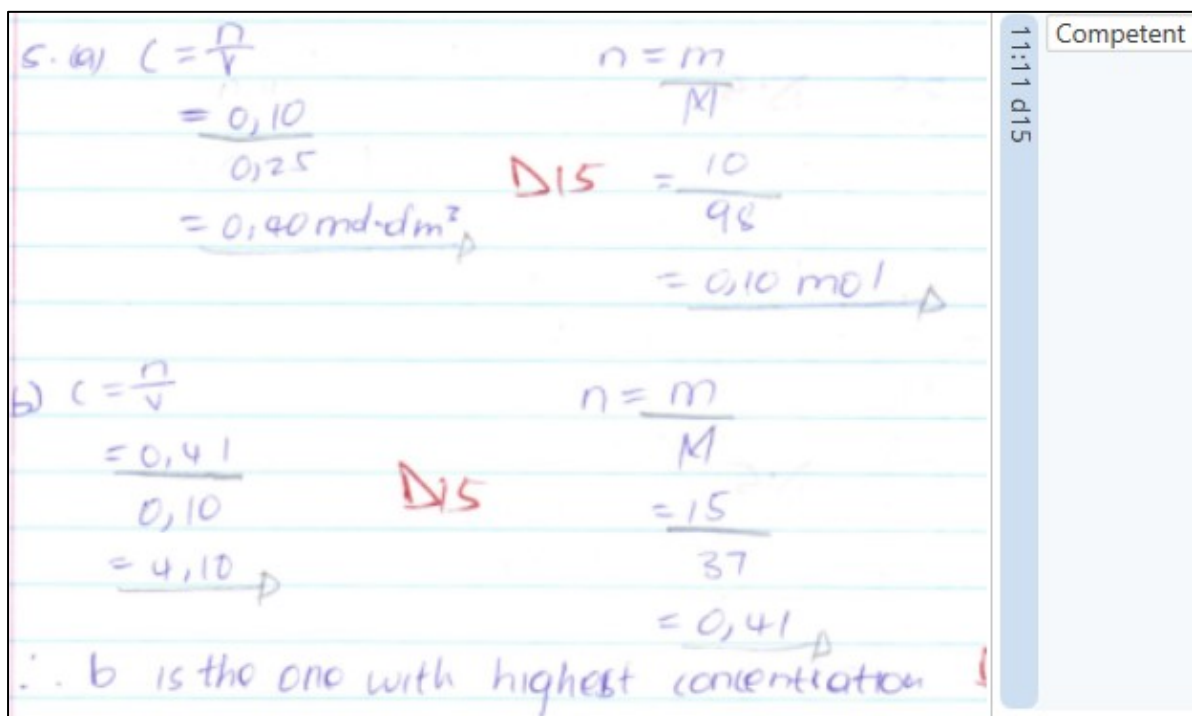 5. (a) C = n/V
= 0,10
0,25
= 0,40 mol·dm³
n = m
M
D15
= 10
98
= 0,10 mol
b) C = n/v
= 0,41
0,10
= 4,10
n = m
M
D15
= 15
37
= 0,41
∴ b is the one with highest concentration
11:11 d15
Competent